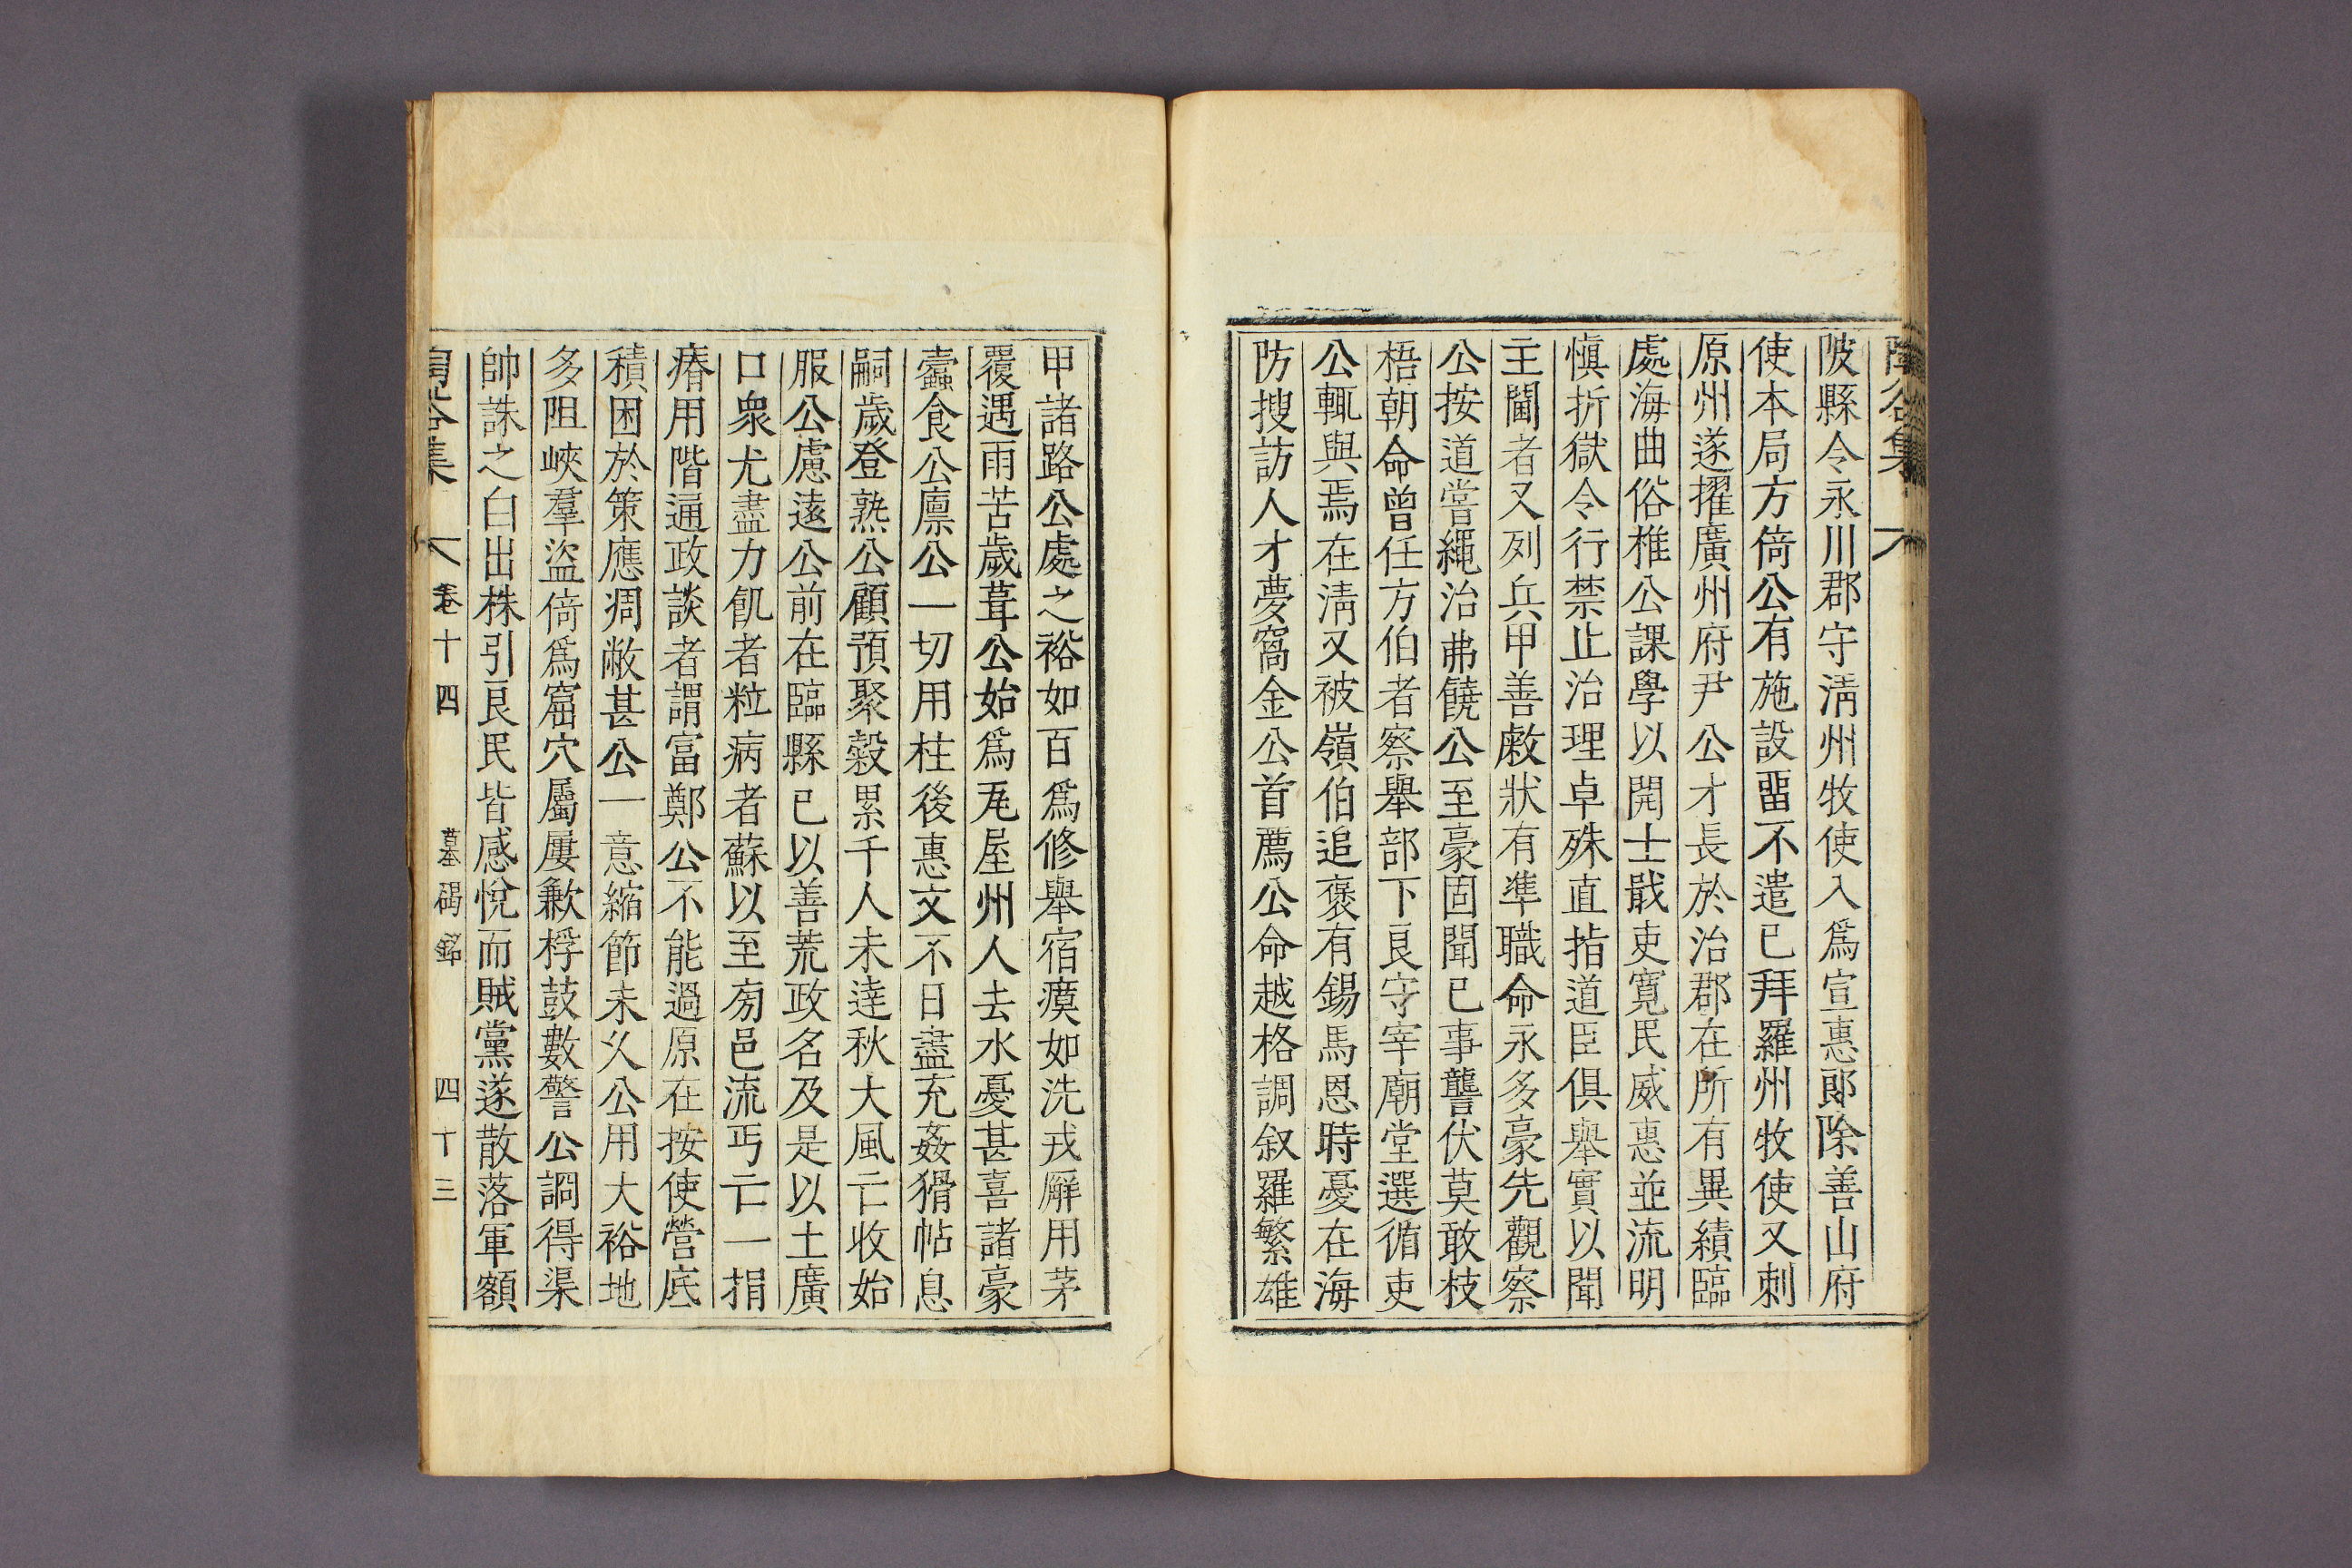 陶谷集
陂縣令永川郡守淸州牧使入爲宣惠郞除善山府
使本局方倚公有施設畱不遣已拜羅州牧使又刺
原州遂擢廣州府尹公才長於治郡在所有異績臨
處海曲俗椎公課學以開士戢吏寬民威惠並流明
愼折獄令行禁止治理卓殊直指道臣俱擧實以聞
主閫者又列兵甲善敹狀有準職命永多豪先觀察
公按道嘗繩治弗饒公至豪固聞已事讋伏莫敢枝
梧朝命曾任方伯者察擧部下良守宰廟堂選循吏
公輒與焉在淸又被嶺伯追褒有錫馬恩時憂在海
防搜訪人才夢窩金公首薦公命越格調叙羅繁雄
甲諸路公處之裕如百爲修擧宿瘼如洗戎廨用茅
覆遇雨苦歲葺公始爲瓦屋州人去水憂甚喜諸豪
蠹食公廩公一切用柱後惠文不日盡充姦猾帖息
嗣歲登熟公顧預聚穀累千人未達秋大風亡收始
服公慮遠公前在臨縣已以善荒政名及是以土廣
口衆尤盡力飢者粒病者蘇以至旁邑流丐亡一捐
瘠用階通政談者謂富鄭公不能過原在按使營底
積困於策應凋敝甚公一意縮節未久公用大裕地
多阻峽羣盜倚爲窟穴屬屢歉桴鼓數警公詗得渠
帥誅之白出株引良民皆感悅而賊黨遂散落軍額
陶谷集 卷十四 墓碣銘 四十三